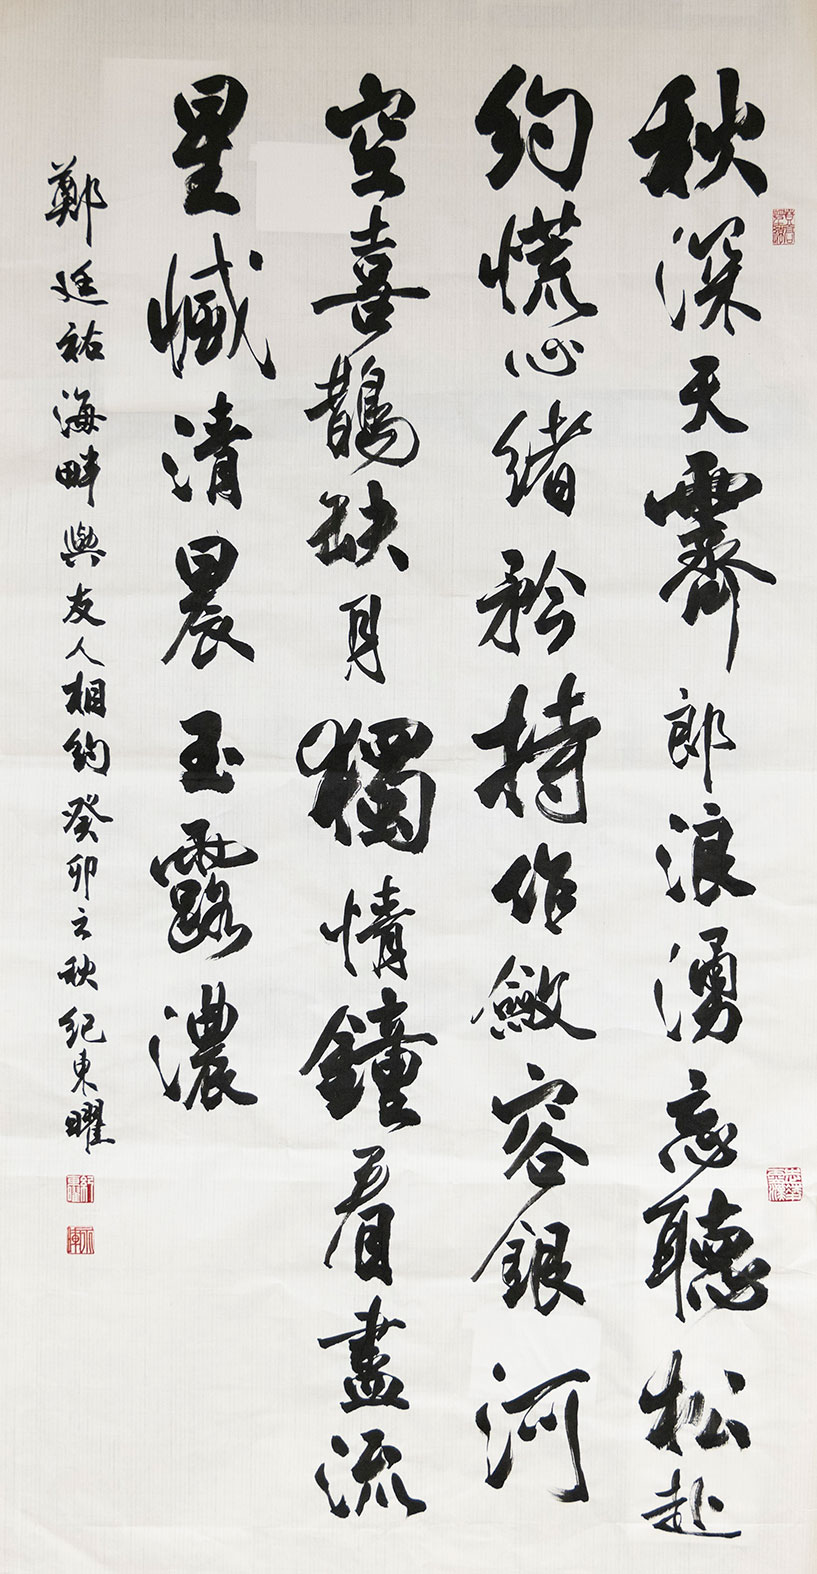 秋深天霽郎浪湧忘聽松赴
約慌心緒矜持作斂容銀河
空喜鵲缺月獨情鐘看盡流
星憾清晨玉露濃
鄭廷祐海畔與友人相約癸卯立秋紀東曜